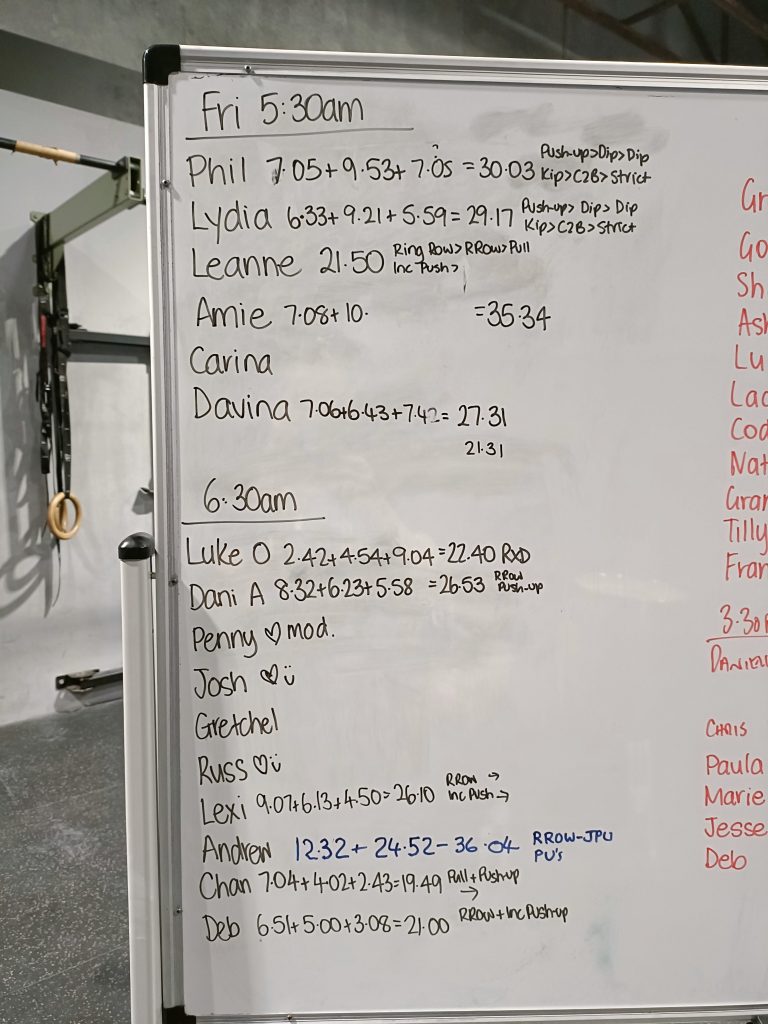 Fri 5:30am
Phil 7.05+9.53+7.05 =30.03 Push-up>Dip>Dip
Kip>C2B>Strict
Lydia 6.33+9.21+5.59=29.17 Push-up> Dip> Dip
Kip>C2B>Strict
Leanne 21.50 Ring Row>RRow>Pull
Inc Push>
Amie 7.08+10. =35.34
Carina
Davina 7.06+6.43+7.42= 27.31
21.31
6:30am
Luke O 2.42+4.54+9.04=22.40 RXD
Dani A 8.32+6.23+5.58 =26.53 RRow
Push-up
Penny ♡ mod.
Josh ♡ ü
Gretchel
Russ ♡ ü
Lexi 9.07+6.13+4.50=26.10 RRow →
Inc Push →
Andrew 12.32+ 24.52- 36.04 RROW-JPU
PU's
Chan 7.04+4.02+2.43=19.49 Pull+Push-up
→
Deb 6.51+5.00+3.08=21.00 RRow+Inc Push-up
Gr
Go
Sh
Ash
Lu
Lac
Cod
Nat
Gran
Tilly
Fran
3:30
DANIEL
CHRIS
Paula
Marie
Jesse
Deb